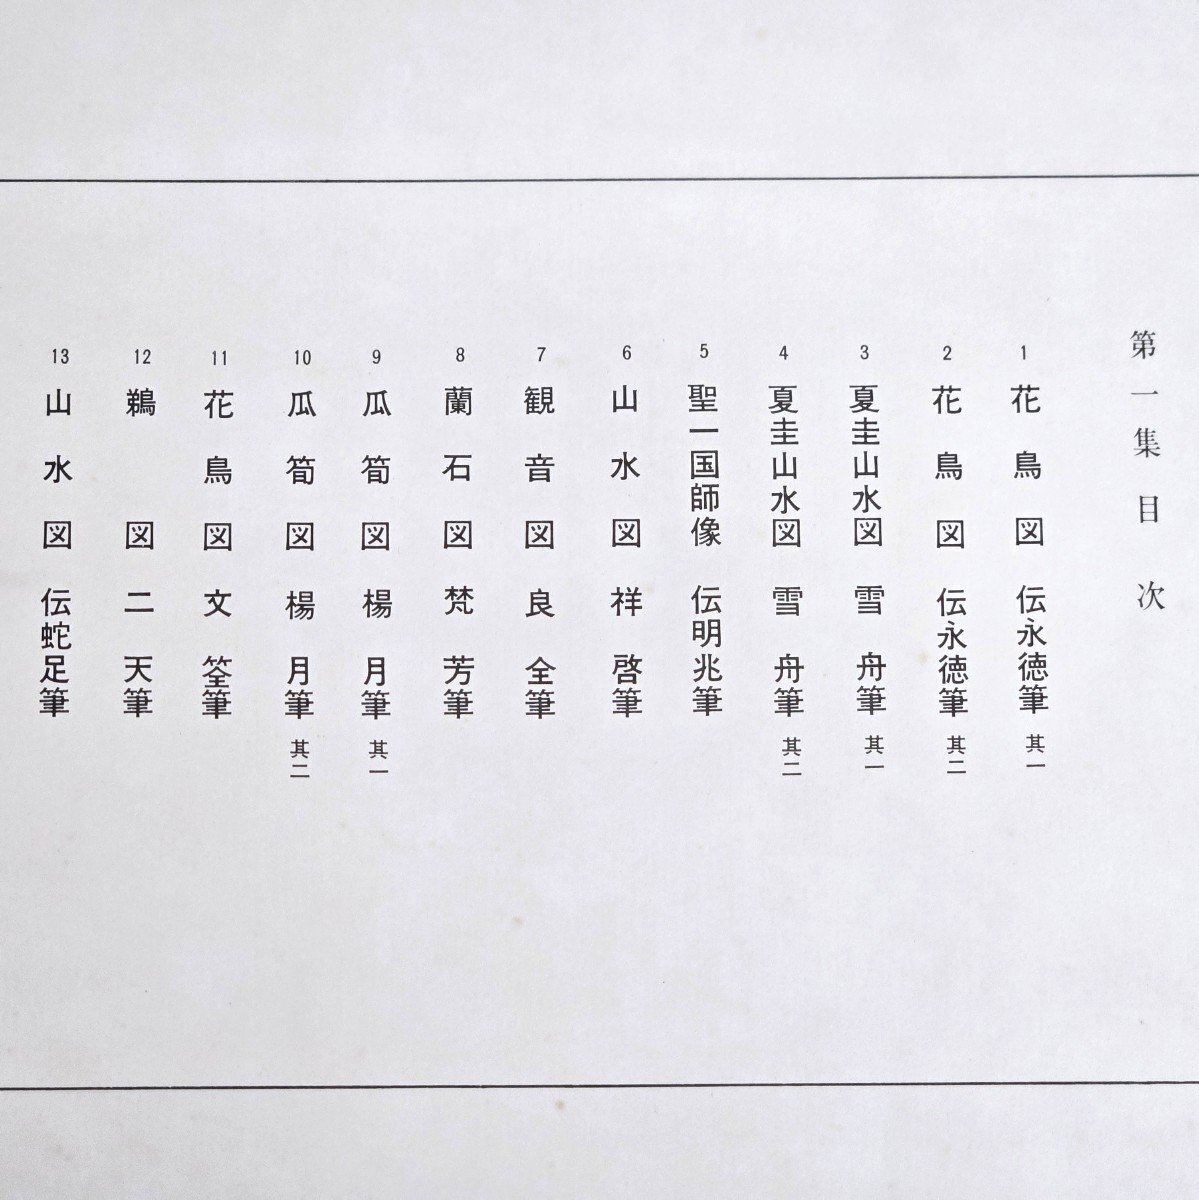 第一集目次
1 花鳥図 伝永徳筆 其一
2 花鳥図 伝永徳筆 其二
3 夏圭山水図 雪舟筆 其一
4 夏圭山水図 雪舟筆 其二
5 聖一国師像 伝明兆筆
6 山水図 祥啓筆
7 観音図 良全筆
8 蘭石図 梵芳筆
9 瓜筍図 楊月筆 其一
10 瓜筍図 楊月筆 其二
11 花鳥図 文筌筆
12 鵜図 二天筆
13 山水図 伝蛇足筆